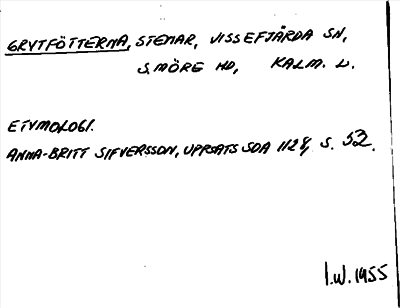 GRYTFÖTTERNA, STENAR, VISSEFJÄRDA SN,
S. MÖRE HD, KALM. L.
ETYMOLOGI.
ANNA-BRITT SIFVERSSON, UPPSATS SOA 1128, S. 52.
I.W. 1955